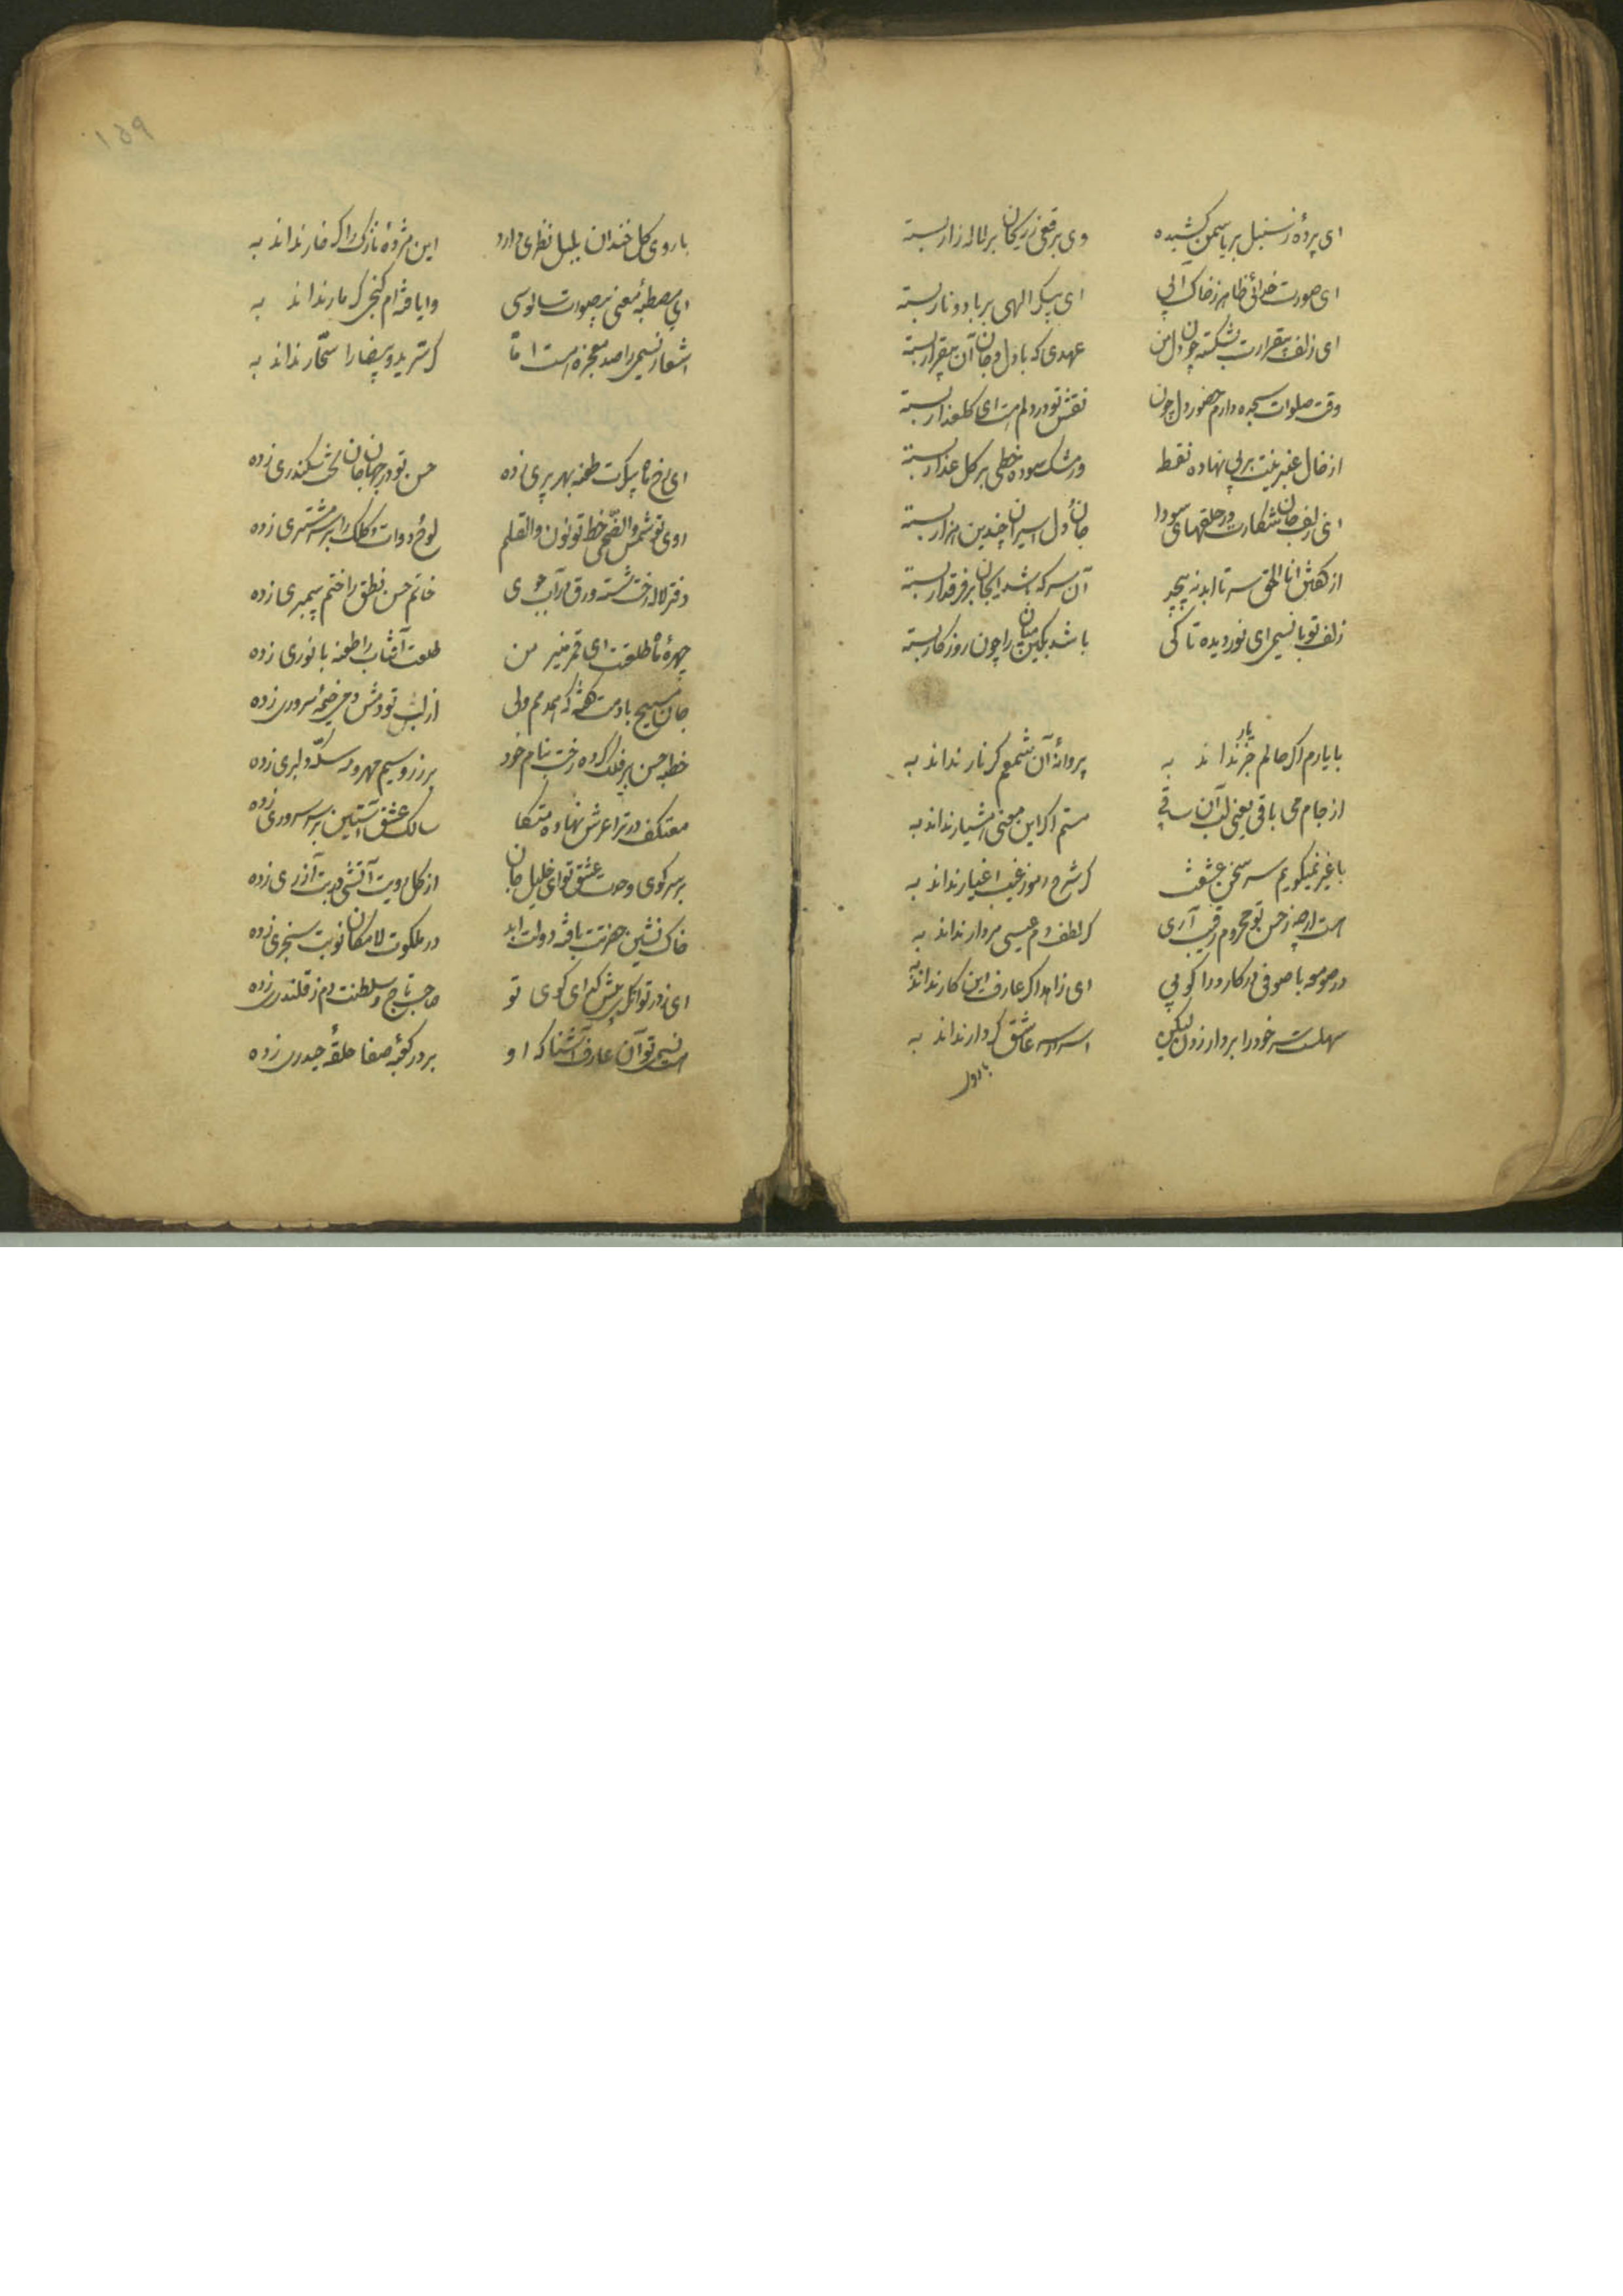 ای پرده ز سنبل بر یاسمن کشیده وی برقعی ز ریحان بر لاله زار بسته
ای صورت خدائی ظاهر ز خاک آبی ای پیکر الهی بر باد و نار بسته
ای زلف بیقرارت بشکسته چون دل من عهدی که با دل و جان آن بیقرار بسته
وقت صلوات سجده دارم حضور دل چون نقش تو در دلم است ای کلعذار بسته
از خال عنبرینت بر لب نهاده نقطه وز مشک سوده خطی بر کل عذار بسته
ای زلف جان شکارت در حلقهای سودا جان و دل اسیران چندین هزار بسته
از کفتن انا الحق سر تا ابد نه پیچد آن سر که شد ایجان بر فرق دار بسته
زلف تو با نسیمی ای نور دیده تا کی باشد بکین میان را چون روزکار بسته
با یارم اکر حالم جز یار نداند به پروانهٔ آن شمعم کر نار نداند به
از جام می باقی یعنی لب آن ساقی مستم اکر این معنی هشیار نداند به
با غیر نمیکویم سر سخن عشقت کر شرح رموز غیب اغیار نداند به
است ارچه ز حسن تو محروم رقیب آری کر لطف دم عیسی مردار نداند به
در صومعه با صوفی در کار ودرا کوئی ای زاهد اکر عارف این کار نداند به
سهلست سر خود را بر دار زدن لیکن اسرار سر عاشق کر دار نداند به
با روی
با روی کل خندان بلبل نظری دارد این مژدهٔ نازک را کر خار نداند به
ای مصطبهٔ معنی در صورت سالوسی وا یافته‌ام کنجی کر مار نداند به
اشعار نسیمی را صد معجزه است اما کر سر ید و بیضا را سحار نداند به
ای رخ ماه پیکرت طعنه بهر پری زده حسن تو در جهان جان تخت سکندری زده
روی تو شمس والضحی خط تو نون والقلم لوح و دوات و کلک را بر سر مشتری زده
دفتر لاله رخت شسته ورق در آب جوی خاتم حسن نطق را ختم پیمبری زده
چهرهٔ ماه طلعتت ای قمر منیر من طلعت آفتاب را طعنه بانوری زده
جان مسیح با دمت کفته که همدمم ولی از لب تو دمش دمی خیمهٔ سروری زده
خطبهٔ حسن بر فلک کرده رخت بنام خود بر زر و سیم مهر و مه سکهٔ دلبری زده
معتکف در ترا عرش نهاده متکا سالک عشقت آستین بر سر سروری زده
بر سر کوی وحدت عشق تو ای خلیل جان از کل رویت آتشی در بت آزری زده
خاک نشین حضرتت یافته دولت ابد در ملکوت لامکان نوبت سنجری زده
ای ز در توانکریش کدای کوی تو صاحب تاج و سلطنت دم ز قلندری زده
است نسیمی تو آن عارف آشنا که او بر در کعبهٔ صفا حلقهٔ حیدری زده
۱۵۹